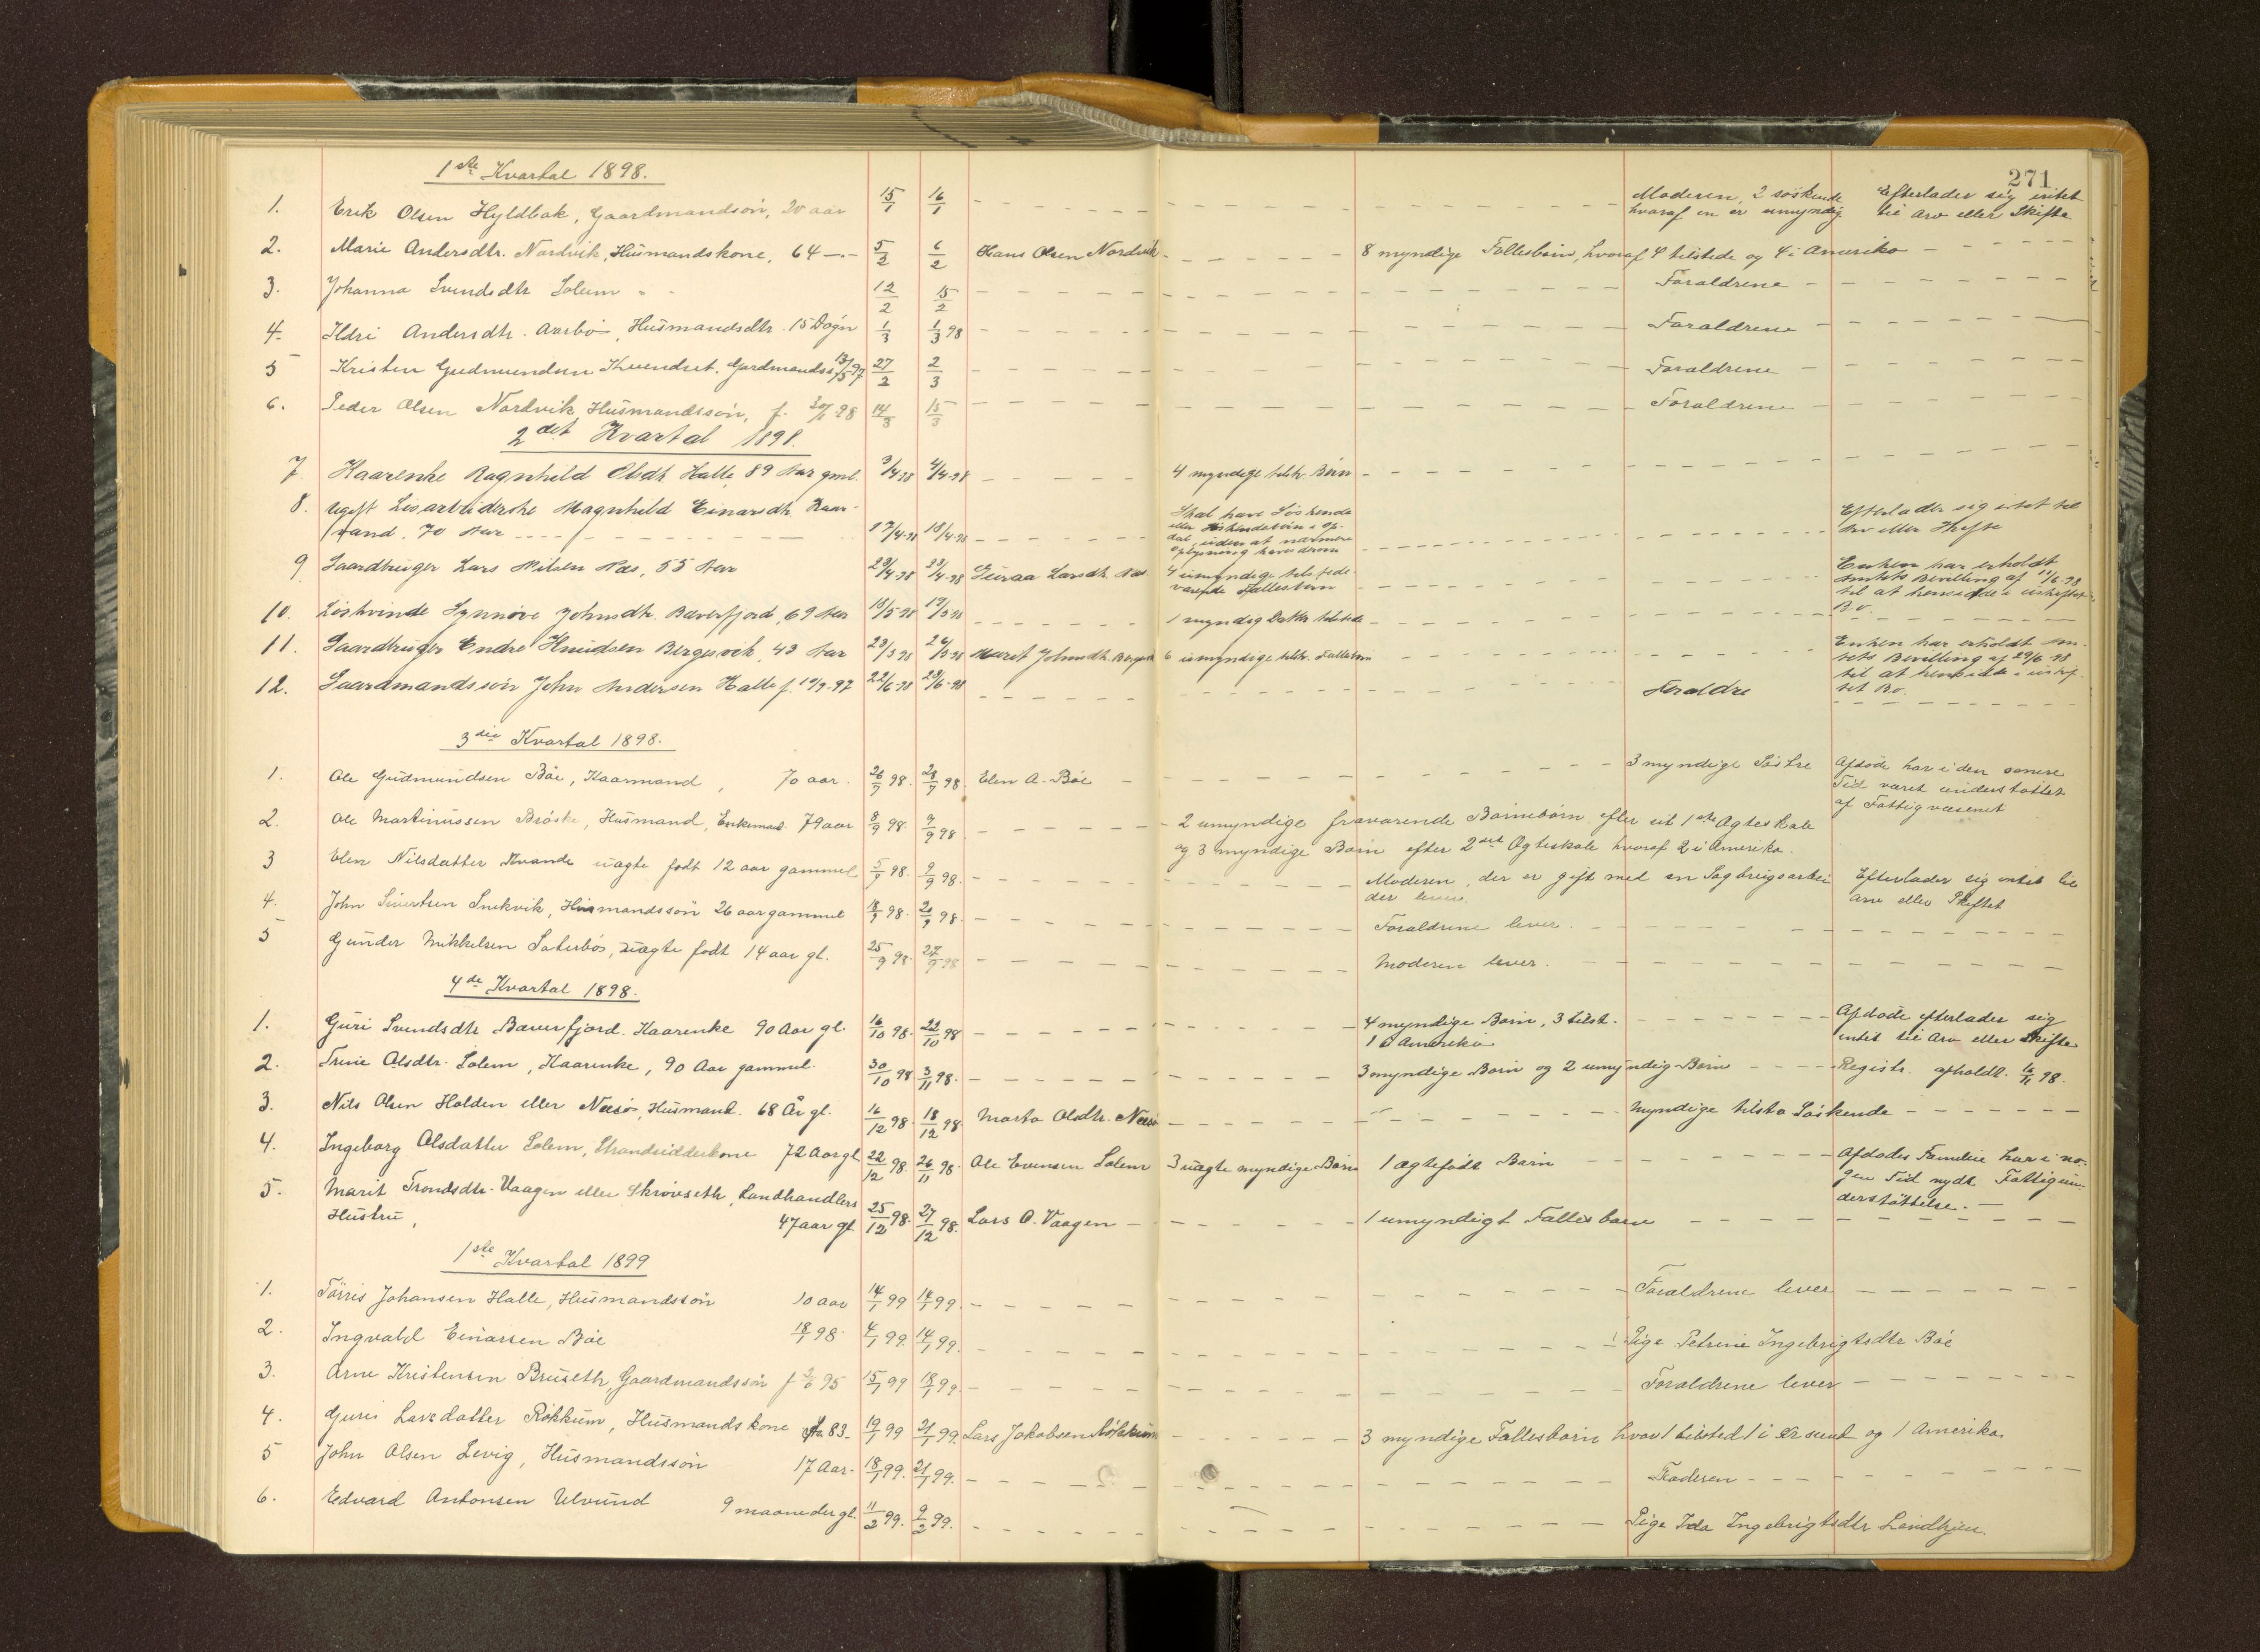 271
1ste Kvartal 1898.
1. Erik Olsen Hyldbak, Gaardmandssön, 20 aar 15/1 16/1 Moderen, 2 söskende Efterlader sig intet
hvoraf en er umyndig til Arv eller Skifte
2. Marie Andersdtr. Nordvik, Husmandskone, 64 —.— 5/2 6/2 Hans Olsen Nordvik 8 myndige Fællesbörn, hvoraf 4 tilstede og 4 i Amerika
3. Johanna Svendsdtr Solem 12/2 15/2 Forældrene
4. Ildri Andersdtr. Aarbö, Husmandsdtr. 15 Dögn 1/3 1/3 98 Forældrene
5 Kristen Gudmundsen Kvendset. Gardmandss 13/5 97 27/2 2/3 Forældrene
6. Peder Olsen Nordvik, Husmandssön, f. 30/1 98 14/3 15/3 Forældrene
2det Kvartal 1898.
7 Kaarenke Ragnhild Olsdt Halle, 89 Aar gml. 3/4-98 4/4-98 4 myndige tilst. Börn
8. Ugift Lösarbeiderske Magnhild Einarsdtr. Kaar- Skal have Söskende Efterlader sig intet til
vand, 70 Aar 17/4-98 18/4-98 eller Söskendebörn i Op- Arv eller Skifte
dal, uden at nærmere
oplysning haves derom
9 Gaardbruger Lars Nilsen Næs, 55 Aar 23/4-98 4-98 Guraa Larsdtr. Næs 4 umyndige tilstede- Enken har erholdt
værende Fællesbörn Amtets Bevilling af 11/6-98
til at hensidde i uskiftet
Bo.
10. Löskvinde Synnöve Johnsdtr. Bæverfjord, 69 Aar 18/5-98 19/5-98 1 myndig Datter tilstede
11. Gaardbruger Endre Knudsen Bergsvik, 43 Aar 23/5 98 26/5-98 Marit Johnsdtr. Bergsvik 6 umyndige tilst. Fællesbörn Enken har erholdt Am-
tets Bevilling af 29/6 98
til at hensidde i uskif-
tet Bo.
12. Gaardmandssön John Andersen Halle f. 19/9-97 22/6-98 23/6-98 Forældre
3die Kvartal 1898.
1. Ole Gudmundsen Böe, Kaarmand, 70 aar. 26/7 98. 28/7 98. Elen A. Böe 3 myndige Söstre Afdöde har i den senere
Tid været understöttet
af Fattigvæsenet
2. Ole Martinussen Bröske, Husmand, Enkemand. 79 aar 8/9 98. 9/9 98. 2 umyndige fraværende Barnebörn efter sit 1ste Ægteskab
og 3 myndige Börn efter 2det Ægteskab hvoraf 2 i Amerika.
3 Elen Nilsdatter Kvande uægte födt 12 aar gammel 5/9 98. 9/9 98. Moderen, der er gift med en Sagbrugsarbei Efterlader sig intet til
der lever. Arv eller Skiftet
4. John Sivertsen Snekvik, Husmandssön 26 aar gammel 18/9 98. 21/9 98. Forældrene lever.
5 Gunder Mikkelsen Sæterbö, uægte födt 14 aar gl. 25/9 98. 27/9 98 Moderen lever.
4de Kvartal 1898.
1. Guri Svendsdtr Bæverfjord. Kaarenke 90 Aar gl. 16/10 98. 22/10 98 4 myndige Börn, 3 tilst. Afdöde efterlader sig
1 i Amerika intet til Arv eller Skifte
2. Trine Olsdtr. Solem, Kaarenke, 90 Aar gammel. 30/10 98 3/11 98. 3 myndige Börn og 2 umyndig Börn Registr. afholdt. 16/11 98.
3. Nils Olsen Holden eller Neesö, Husmand. 68 År gl. 16/12 98. 18/12 98. Marta Olsdtr. Neesö Myndige tilste Söskende
4. Ingeborg Olsdatter Solem, Strandsidderkone 72 Aar gl. 22/12 98. 26/11 98. Ole Evensen Solem 3 uægte myndige Börn 1 ægtefödt Barn Afdödes Familie har i no-
gen Tid nydt Fattigun-
derstöttelse.
5. Marit Trondsdtr. Vaagen eller Skrövseth, Landhandlers
Hustru, 47 aar gl 25/12 98. 27/12 98. Lars O. Vaagen 1 umyndigt Fællesbarn
1ste Kvartal 1899
1. Törris Johansen Halle, Husmandssön 10 aar 14/1 99 14/1 99. Forældrene lever
2. Ingvald Einarsen Böe 18/1 98. 4/1 99. 14/1 99. Pige Petrine Ingebrigtsdtr Böe
3. Arne Kristensen Bruseth, Gaardmandssön f 2/6 95 15/1 99 18/1 99. Forældrene lever
4. Guri Larsdatter Rökkum, Husmandskone 83. 19/1 99 21/1 99. Lars Jakobsen Rökkum 3 myndige Fællesbörn hvor 1 tilsted 1 i Kr sund og 1 Amerika
5 John Olsen Levig, Husmandssön 17 Aar. 18/1 99. 21/1 99. Faderen
6. Edvard Antonsen Ulvund 9 maaneder gl. 11/2 99. 9/2 99. Pige Ida Ingebrigtsdtr Lindhjen.